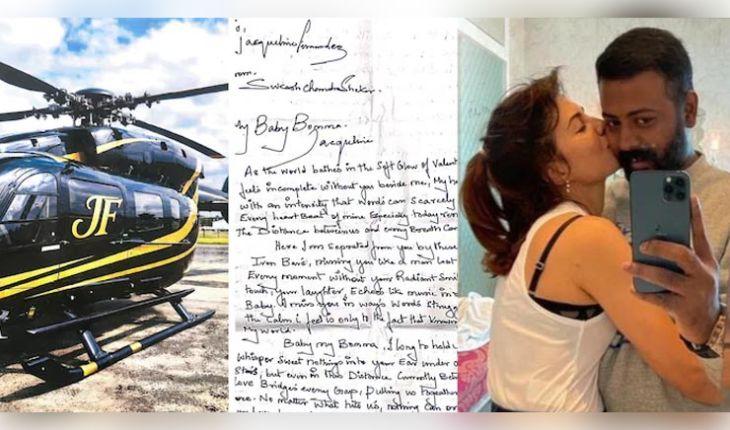 JF
Jacqueline Fernandez
Baby Bomma
Jacqueline
As the world bathes in the Soft Glow of Valent
feels incomplete without you beside me, My he
with an intensity that words can scarcely
Every heart Beat of mine Especially today
The Distance between us and every Breath Can
Here I am separated from you by these
Iron Bars, missing you like a man lost
Every moment without your Radiant Smil
touch, your laughter, Echoes like music in
Baby, I miss you in ways words
the Calm I feel is only to the fact that
My World.
Baby my Bomma, I long to hold
whisper Sweet nothings into your Ear under
Stars, but even in this Distance Currently Betw
Love Bridges every Gap, Pulling us Together
No matter what hits us, nothing can